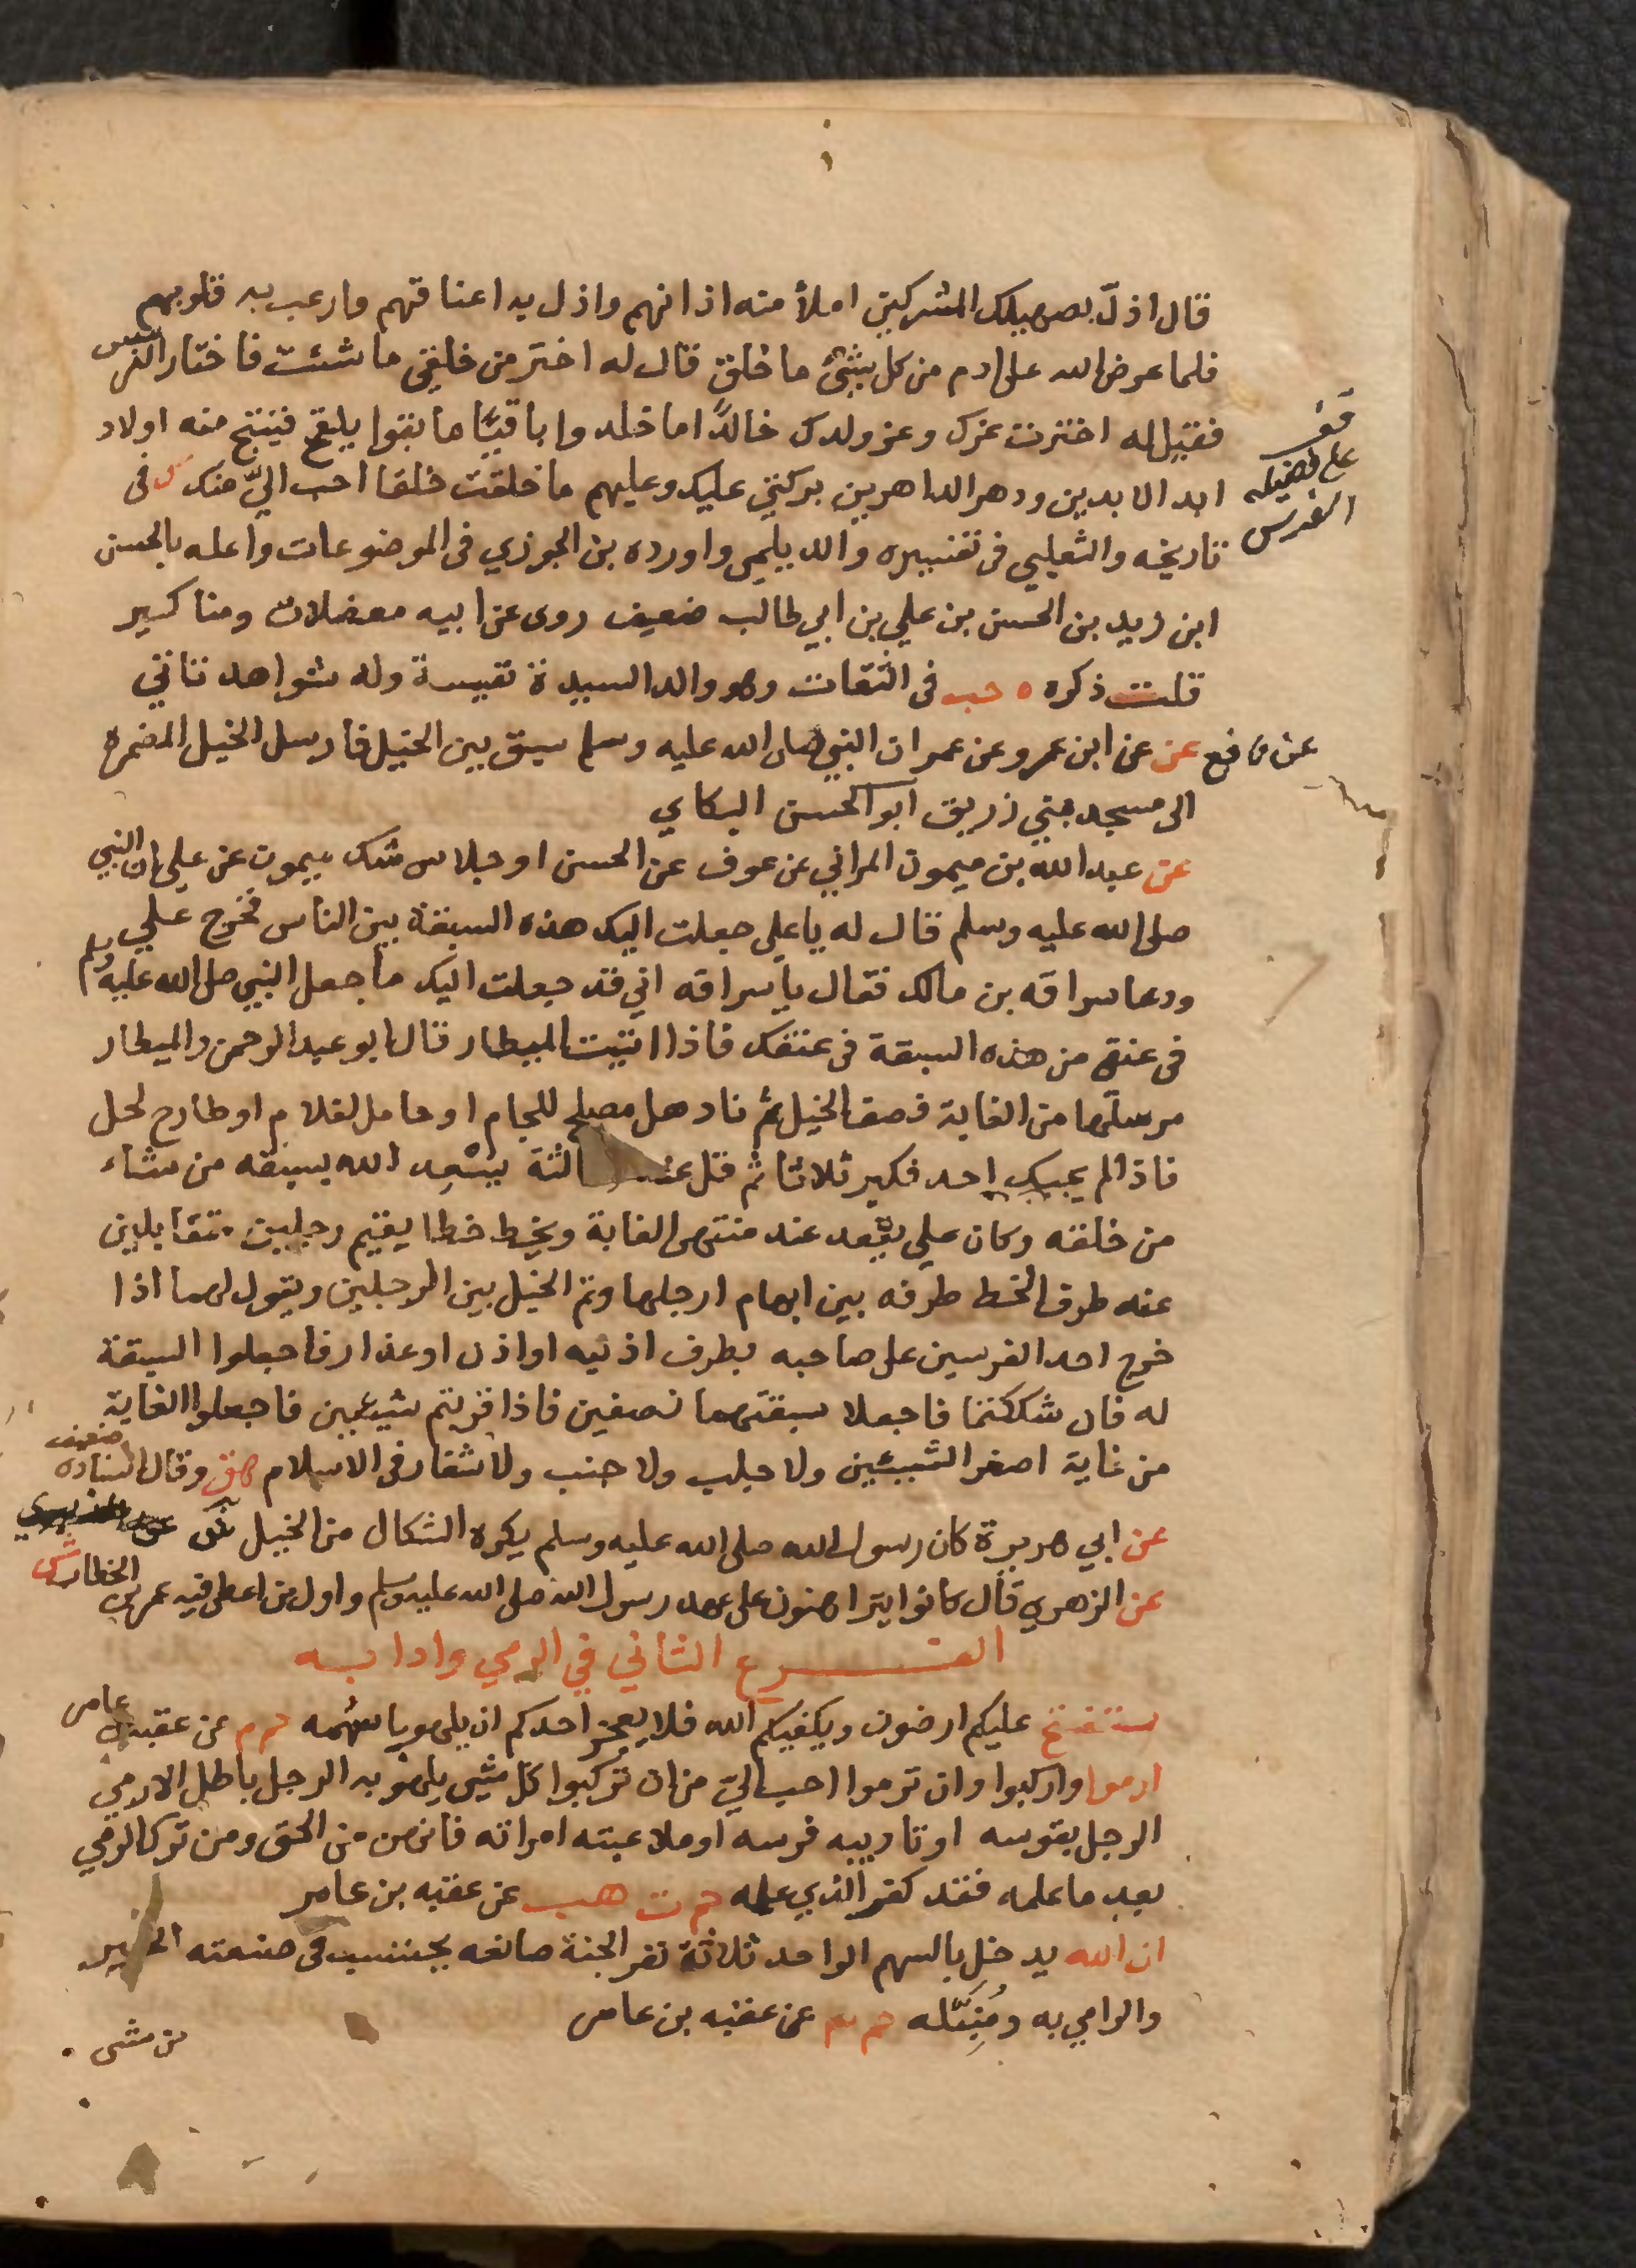 قال اذلّ بصهيلك المشركين املأ منه اذانهم واذل به اعناقهم وارعب به قلوبهم
فلما عرض الله على ادم من كل شئ ما خلق قال له اختر من خلقي ما شئت فاختار الفرس
فقيل له اخترت عزك وعز ولدك خالدًا ما خلدوا باقيًا ما بقوا يلقح فينتج منه اولاد
ابد الابدين ودهر الداهرين بركتي عليك وعليهم ما خلقت خلقا احب اليّ منك ك في
قف
على فضيلة
الفرس
تاريخه والثعلبي في تفسيره والديلمي واورده بن الجوزي في الموضوعات واعله بالحسن
ابن زيد بن الحسن بن علي بن ابي طالب ضعيف روى عن ابيه معضلات ومناكير
قلت ذكره حب في الثقات وهو والد السيدة نفيسة وله شواهد تاتي
عن نافع عن عن ابن عمر وعن عمر ان النبي صلى الله عليه وسلم سبق بين الخيل فارسل الخيل المضمرة
الى مسجد بني زريق ابو الحسن البكاي
عن عبد الله بن ميمون المراني عن عوف عن الحسن او خلاس شك ميمون عن علي ان النبي
صلى الله عليه وسلم قال له يا علي جعلت اليك هذه السبقة بين الناس فخرج علي
ودعا سراقه بن مالك فقال يا سراقه اني قد جعلت اليك ما جعل النبي صلى الله عليه وسلم
في عنقي من هذه السبقة في عنقك فاذا اتيت الميطار قال ابو عبد الرحمن والميطار
مرسلها من الغاية فصف الخيل ثم ناد هل مصلح للجام او حامل لغلام او طارح لجل
فاذا لم يجبك احد فكبر ثلاثا ثم خل عند الثالثة يسعد الله بسبقه من شاء
من خلقه وكان علي يقعد عند منتهى الغاية ويخط خطا يقيم رجلين متقابلين
عنه طرف الخط طرفه بين ابهام ارجلها وتمر الخيل بين الرجلين ويقول لهما اذا
خرج احد الفرسين على صاحبه بطرف اذنيه او اذن او عذار فاجعلوا السبقة
له فان شككتما فاجعلا سبقتهما نصفين فاذا قرنتم شيئين فاجعلوا الغاية
من غاية اصغر الشيئين ولا جلب ولا جنب ولا شغار في الاسلام هق وقال اسناده ضعيف
عن ابي هريرة كان رسول الله صلى الله عليه وسلم يكره الشكال من الخيل
عن الزهري قال كانوا يتراهنون على عهد رسول الله صلى الله عليه وسلم واول من اعطى فيه عمر بن الخطاب ش
الفرع الثاني في الرمي وادابه
ستفتح عليكم ارضون ويكفيكم الله فلا يعجز احدكم ان يلهو باسهمه حم م عن عقبة بن عامر
ارموا واركبوا وان ترموا احب اليّ من ان تركبوا كل شي يلهو به الرجل باطل الا رمي
الرجل بقوسه او تاديبه فرسه او ملاعبته امراته فانهن من الحق ومن ترك الرمي
بعد ما علمه فقد كفر الذي علمه حم ت هب عن عقبه بن عامر
ان الله يدخل بالسهم الواحد ثلاثة نفر الجنة صانعه يحتسب في صنعته الخير
والرامي به ومُنبِّله حم عن عقبه بن عامر